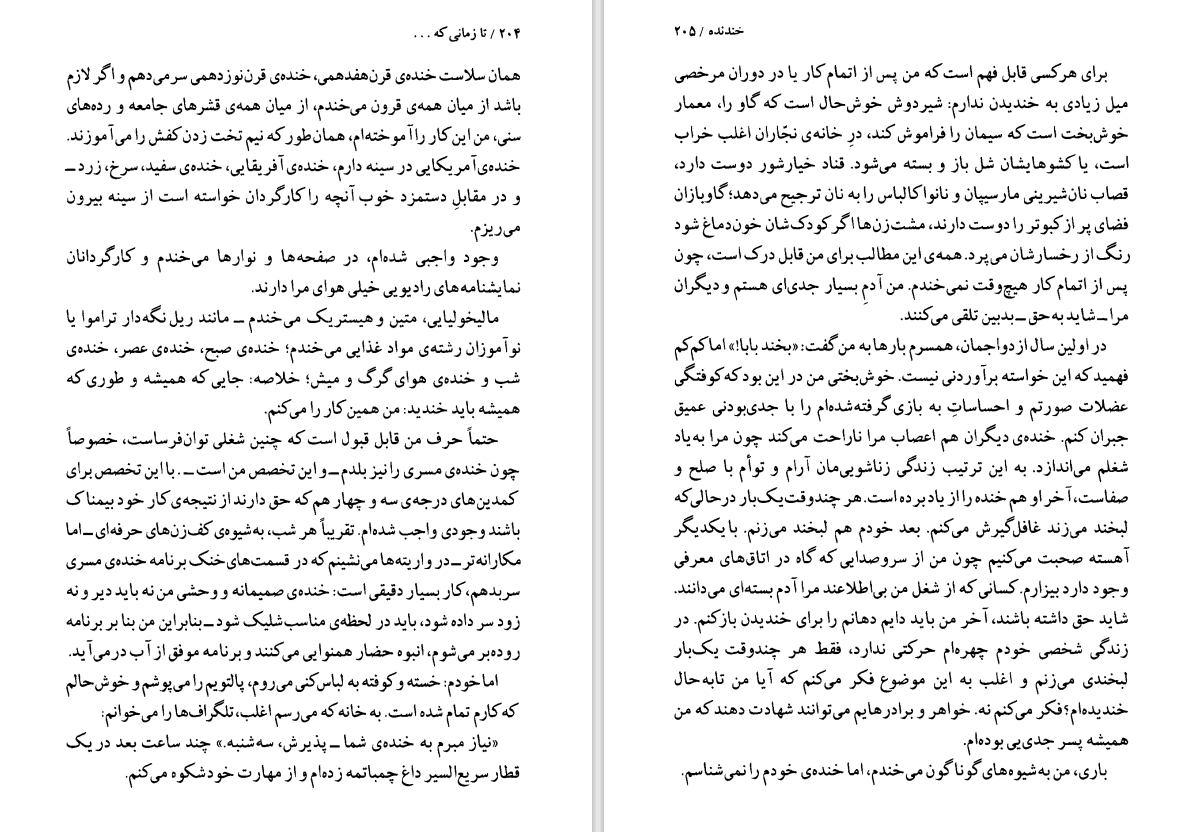 ۲۰۴ / تا زمانی که . . .
همان سلاست خنده‌ی قرن‌هفدهمی، خنده‌ی قرن‌نوزدهمی سر می‌دهم و اگر لازم
باشد از میان همه‌ی قرون می‌خندم، از میان همه‌ی قشرهای جامعه و رده‌های
سنی، من این کار را آموخته‌ام، همان‌طور که نیم تخت زدن کفش را می‌آموزند.
خنده‌ی آمریکایی در سینه دارم، خنده‌ی آفریقایی، خنده‌ی سفید، سرخ، زرد ــ
و در مقابلِ دستمزد خوب آنچه را کارگردان خواسته است از سینه بیرون
می‌ریزم.
وجود واجبی شده‌ام، در صفحه‌ها و نوارها می‌خندم و کارگردانان
نمایشنامه‌های رادیویی خیلی هوای مرا دارند.
مالیخولیایی، متین و هیستریک می‌خندم ــ مانند ریل نگه‌دار تراموا یا
نوآموزان رشته‌ی مواد غذایی می‌خندم؛ خنده‌ی صبح، خنده‌ی عصر، خنده‌ی
شب و خنده‌ی هوای گرگ و میش؛ خلاصه: جایی که همیشه و طوری که
همیشه باید خندید: من همین کار را می‌کنم.
حتماً حرف من قابل قبول است که چنین شغلی توان‌فرساست، خصوصاً
چون خنده‌ی مسری را نیز بلدم ــ و این تخصص من است ــ . با این تخصص برای
کمدین‌های درجه‌ی سه و چهار هم که حق دارند از نتیجه‌ی کار خود بیمناک
باشند وجودی واجب شده‌ام. تقریباً هر شب، به‌شیوه‌ی کف‌زن‌های حرفه‌ای ــ اما
مکارانه‌تر ــ در واریته‌ها می‌نشینم که در قسمت‌های خنک برنامه خنده‌ی مسری
سر بدهم، کار بسیار دقیقی است: خنده‌ی صمیمانه و وحشی من نه باید دیر و نه
زود سر داده شود، باید در لحظه‌ی مناسب شلیک شود ــ بنابراین من بنا بر برنامه
روده‌بر می‌شوم، انبوه حضار همنوایی می‌کنند و برنامه موفق از آب در می‌آید.
اما خودم: خسته و کوفته به لباس‌کنی می‌روم، پالتویم را می‌پوشم و خوش‌حالم
که کارم تمام شده است. به خانه که می‌رسم اغلب، تلگراف‌ها را می‌خوانم:
«نیاز مبرم به خنده‌ی شما ــ پذیرش، سه‌شنبه.» چند ساعت بعد در یک
قطار سریع‌السیر داغ چمباتمه زده‌ام و از مهارت خود شکوه می‌کنم.
خندنده / ۲۰۵
برای هر کسی قابل فهم است که من پس از اتمام کار یا در دوران مرخصی
میل زیادی به خندیدن ندارم: شیردوش خوش‌حال است که گاو را، معمار
خوش‌بخت است که سیمان را فراموش کند، درِ خانه‌ی نجّاران اغلب خراب
است، یا کشوهایشان شل باز و بسته می‌شود. قناد خیارشور دوست دارد،
قصاب نان‌شیرینی مارسیپان و نانوا کالباس را به نان ترجیح می‌دهد؛ گاوبازان
فضای پر از کبوتر را دوست دارند، مشت‌زن‌ها اگر کودک‌شان خون‌دماغ شود
رنگ از رخسارشان می‌پرد. همه‌ی این مطالب برای من قابل درک است، چون
پس از اتمام کار هیچ‌وقت نمی‌خندم. من آدمِ بسیار جدی‌ای هستم و دیگران
مرا ــ شاید به حق ــ بدبین تلقی می‌کنند.
در اولین سال ازدواجمان، همسرم بارها به من گفت: «بخند بابا!» اما کم‌کم
فهمید که این خواسته برآوردنی نیست. خوش‌بختی من در این بود که کوفتگی
عضلات صورتم و احساساتِ به بازی گرفته‌شده‌ام را با جدی‌بودنی عمیق
جبران کنم. خنده‌ی دیگران هم اعصاب مرا ناراحت می‌کند چون مرا به‌یاد
شغلم می‌اندازد. به این ترتیب زندگی زناشویی‌مان آرام و توأم با صلح و
صفاست، آخر او هم خنده را از یاد برده است. هر چندوقت‌یک‌بار در حالی‌که
لبخند می‌زند غافل‌گیرش می‌کنم. بعد خودم هم لبخند می‌زنم. با یکدیگر
آهسته صحبت می‌کنیم چون من از سروصدایی که گاه در اتاق‌های معرفی
وجود دارد بیزارم. کسانی که از شغل من بی‌اطلاعند مرا آدم بسته‌ای می‌دانند.
شاید حق داشته باشند، آخر من باید دایم دهانم را برای خندیدن بازکنم. در
زندگی شخصی خودم چهره‌ام حرکتی ندارد، فقط هر چندوقت یک‌بار
لبخندی می‌زنم و اغلب به این موضوع فکر می‌کنم که آیا من تابه‌حال
خندیده‌ام؟ فکر می‌کنم نه. خواهر و برادرهایم می‌توانند شهادت دهند که من
همیشه پسر جدی‌یی بوده‌ام.
باری، من به شیوه‌های گوناگون می‌خندم، اما خنده‌ی خودم را نمی‌شناسم.